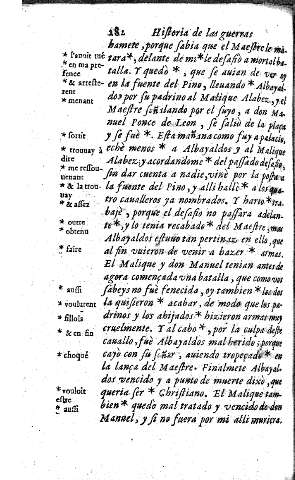 182 Historia de las guerras
hamete, porque sabia que el Maestre le ma
tara*, delante de mi*le desafio a mortal ba-
talla. Y quedò *, que se auian de ver oy
en la fuente del Pino, lleuando* Albayal-
dos por su padrino al Malique Alabez, y el
Maestre señalando por el suyo, a don Ma-
nuel Ponce de Leon, se saliò de la plaça
y se fuè *. Esta mañana como fuy a palacio,
echè menos * a Albayaldos y al Malique
Alabez, y acordandome* del passado desafio,
sin dar cuenta a nadie, vine por la posta a
la fuente del Pino, y alli hallè * a los qua-
tro caualleros ya nombrados. Y harto* tra-
bajè, porque el desafio no passara adelan-
te*, y lo tenia recabado* del Maestre, mas
Albayaldos estuuo tan pertinaz en ello, que
al fin vuieron de venir a hazer* armas.
El Malique y don Manuel tenian antes de
agora començada vna batalla, que como vos
sabeys no fuè fenecida, oy tambien* los dos
la quisieron* acabar, de modo que los pa-
drinos y los ahijados* hizieron armas muy
cruelmente. Y al cabo*, por la culpa de su
cauallo, fuè Albayaldos mal herido; porque
cayò con su señor, auiendo tropeçado* en
la lança del Maestre. Finalmete Albayal-
dos vencido y a punto de muerte dixo, que
queria ser* Christiano. El Malique tam-
bien* quedò mal tratado y vencido de don
Manuel, y si no fuera por mi alli muriera.
* l'auoit tué
* en ma pre-
sence
* & arreste-
rent
* menant
* sortit
* trouuay à
dire
* me ressou-
uenant
* & la trou-
uay
* & assez
* outre
* obtenu
* faire
* aussi
* voulurent
* filiols
* & en fin
* choqué
* vouloit
estre
* aussi